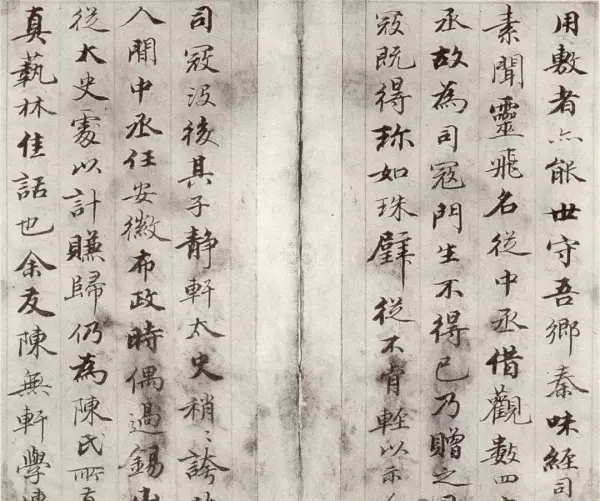 用敷者亦能世守吾鄉秦味經司
素聞靈飛名從中丞借觀數四
丞故為司寇門生不得已乃贈之
寇既得珎如珠璧從不肯輕以示
司寇沒後其子靜軒太史稍〻誇
人聞中丞任安徽布政時偶過錫
從太史處以計賺歸仍為陳氏所
真藝林佳話也余友陳無軒學